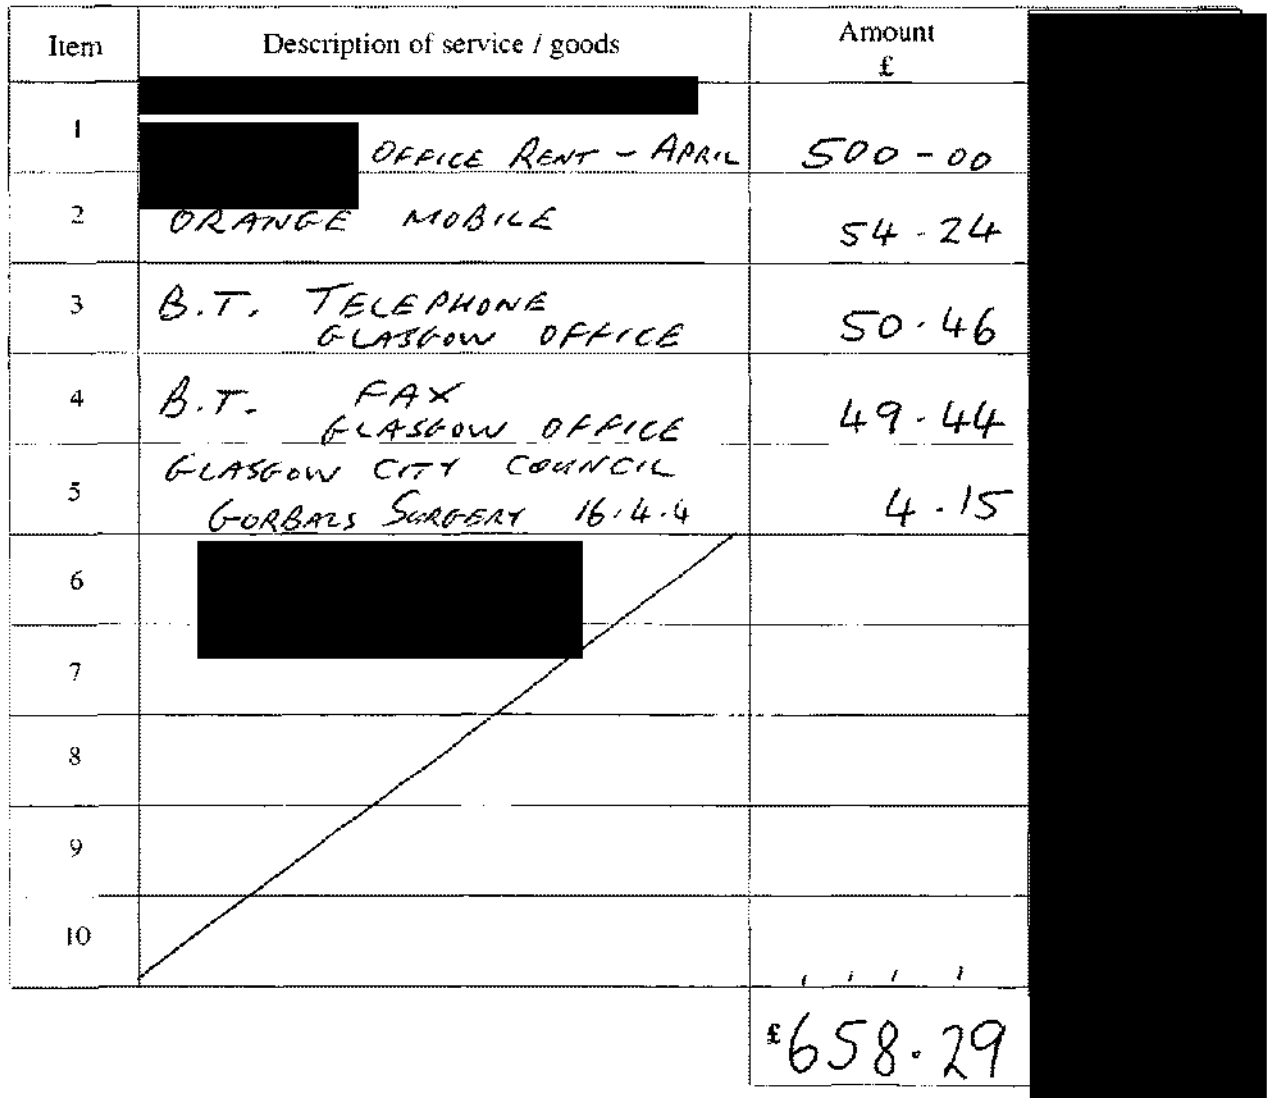 Item Description of service / goods Amount
£
1 OFFICE RENT - APRIL 500-00
2 ORANGE MOBILE 54-24
3 B.T. TELEPHONE
GLASGOW OFFICE 50.46
4 B.T. FAX
GLASGOW OFFICE 49.44
GLASGOW CITY COUNCIL
5 GORBALS SURGERY 16.4.4 4.15
6
7
8
9
10
£658.29